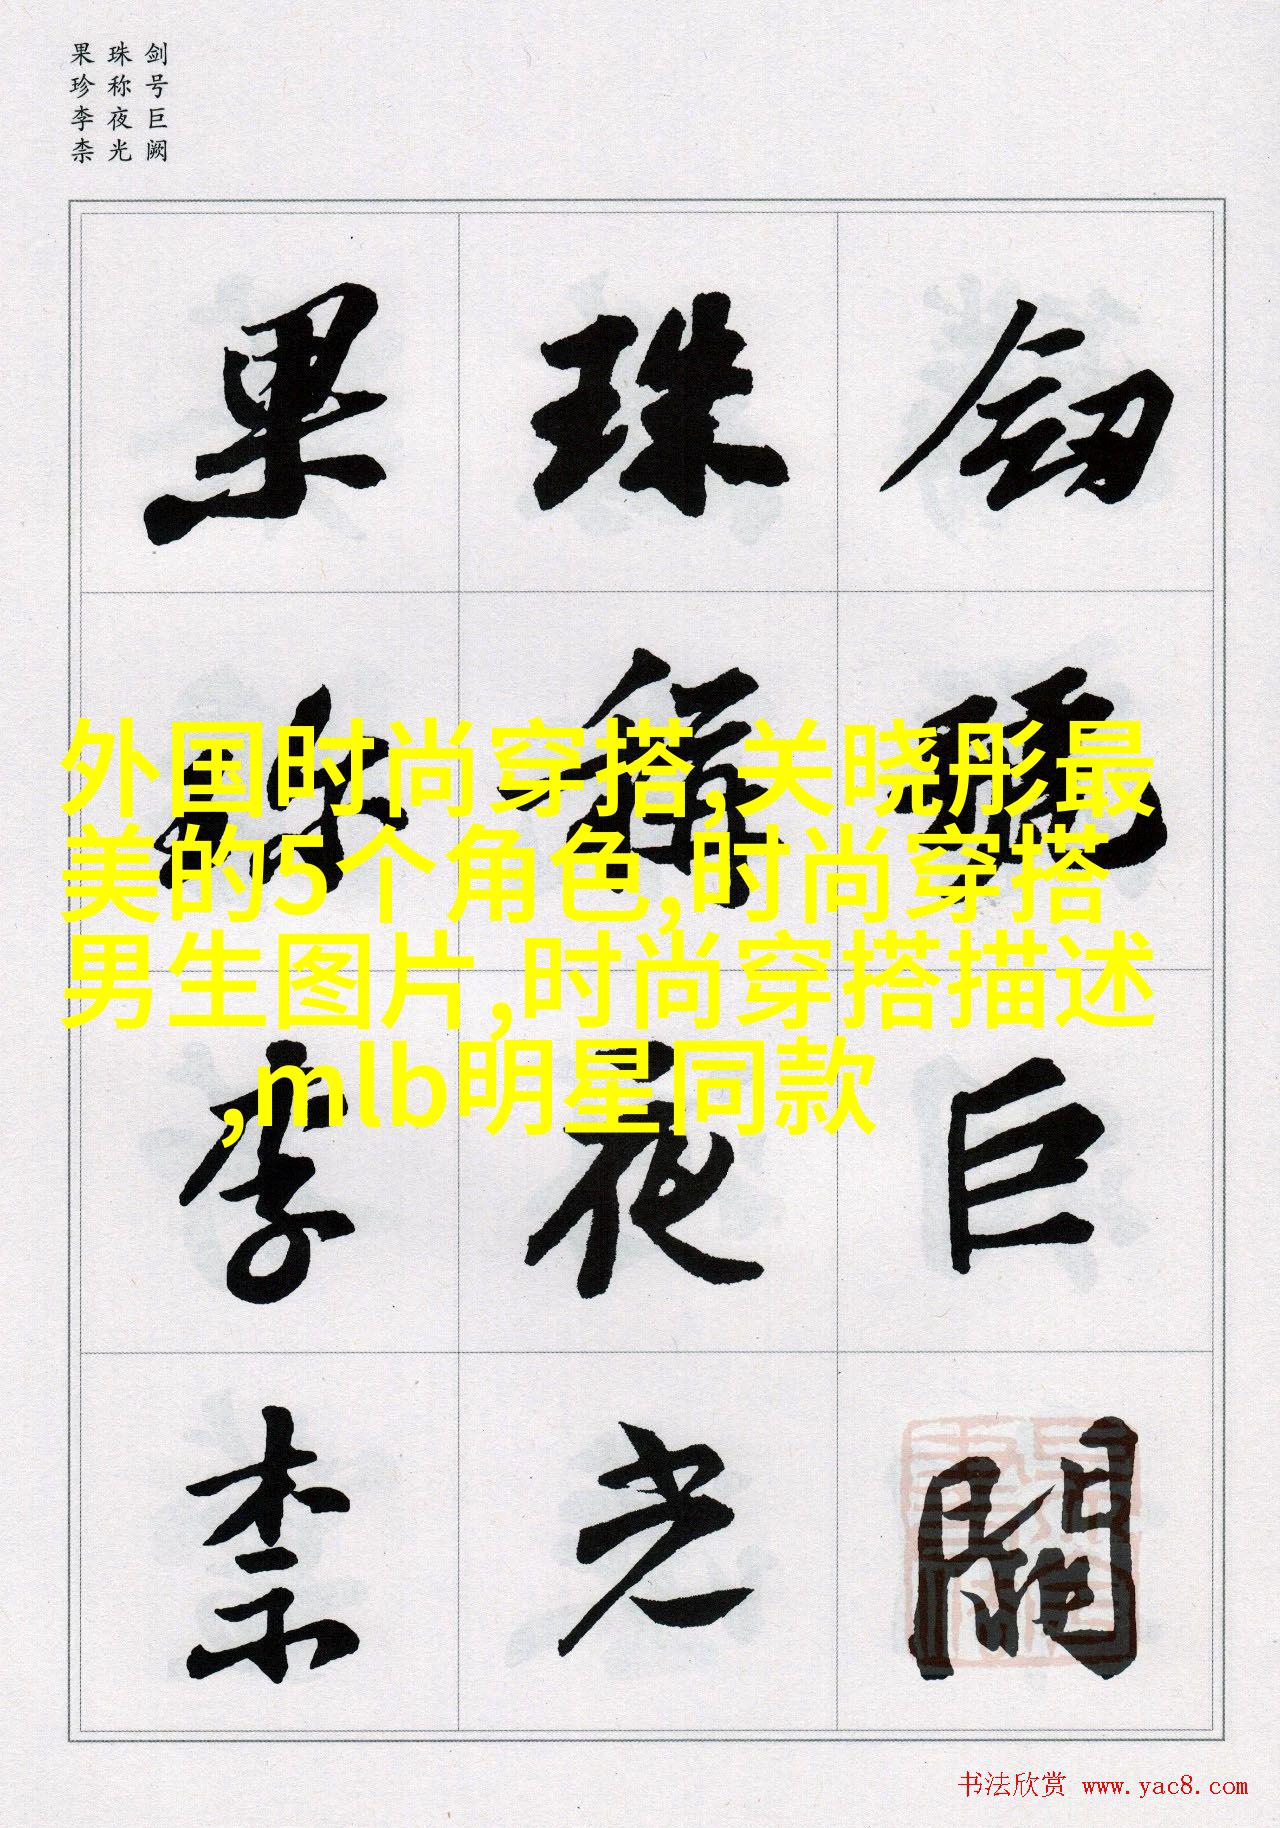 剑号巨阙
珠称夜光
果珍李柰
劒號巨闕
珠稱夜光
果珎李柰
外国时尚穿搭,关晓彤最
美的5个角色,时尚穿搭
男生图片,时尚穿搭描述
,mlb明星同款
书法欣赏 www.yac8.com